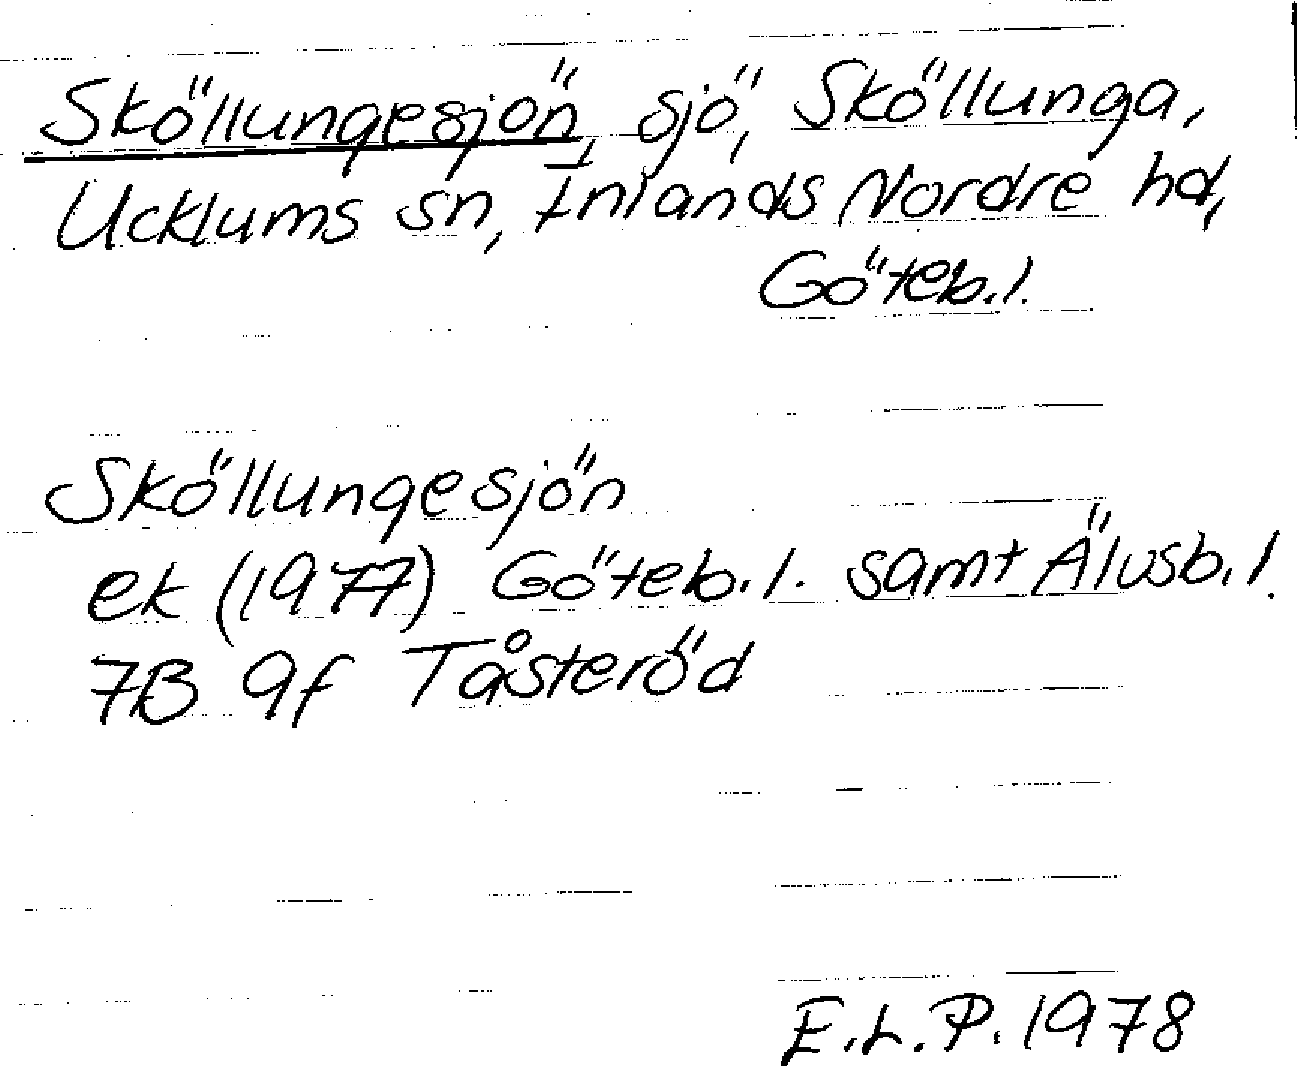 Sköllungesjön, sjö, Sköllunga,
Ucklums sn, Inlands Nordre hd,
Göteb.l.
Sköllungesjön
ek (1977) Göteb.l. samt Älvsb.l.
7B 9f Tåsteröd
E.L.P. 1978